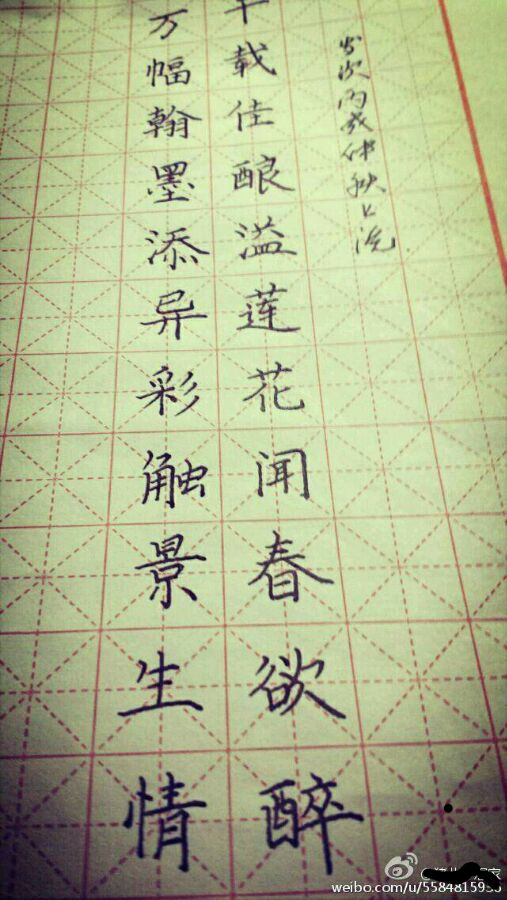 岁次丙戌仲秋上浣
千载佳酿溢莲花闻春欲醉
万幅翰墨添异彩触景生情
weibo.com/u/5584815938